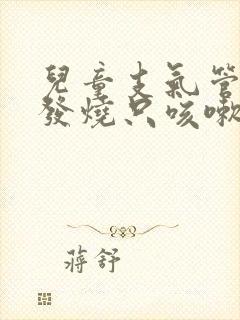 兒童支氣管
發燒只咳嗽
蔣舒